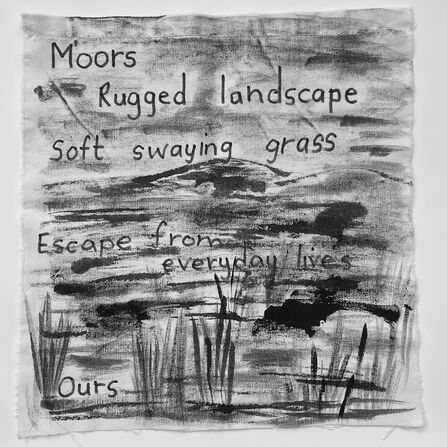 Moors
Rugged landscape
Soft swaying grass
Escape from
everyday lives
Ours